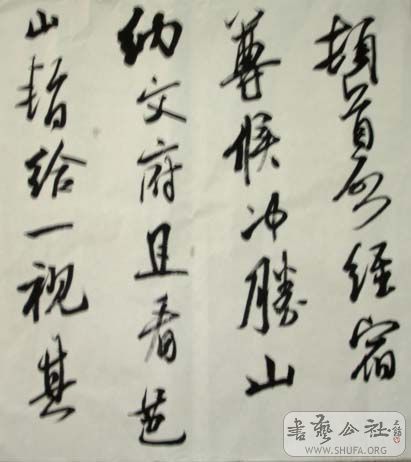 頓首啓經宿
尊候冲勝山
納文府且看芭
山暫給一視其
書藝公社
WWW.SHUFA.ORG